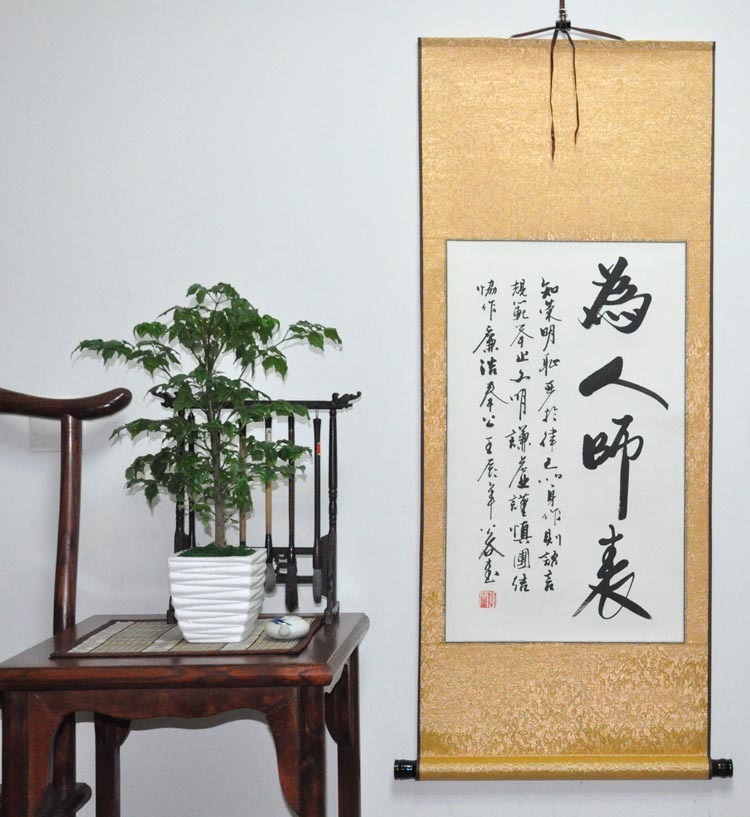 為人師表
知榮明恥严於律己以身作則語言
規範举止文明謙虛謹慎團结
協作廉洁奉公壬辰年